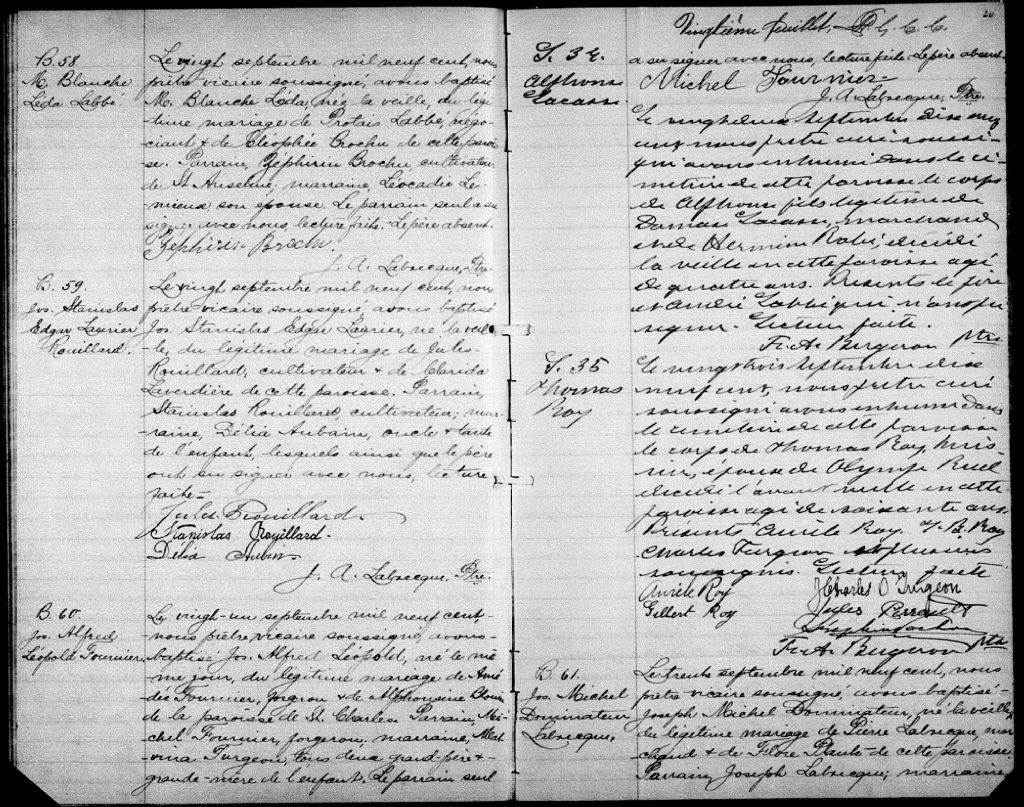 B. 58
M. Blanche
Léda Labbé.
Le vingt septembre mil neuf cent, nous
prêtre vicaire soussigné, avons baptisé
M. Blanche Léda, née la veille, du légi
time mariage de Protais Labbé, négo
ciant & de Cléophée Brochu de cette parois
se. Parrain, Zéphirin Brochu, cultivateur
de St Anselme; marraine, Léocadie Le-
mieux son épouse. Le parrain seul a su
signer avec nous, lecture faite. Le père absent.
Zephirin Brochu
J. A. Labrecque, Ptre.
B. 59.
Jos. Stanislas
Edgar Laurier
Rouillard.
Le vingt septembre mil neuf cent, nous
prêtre vicaire soussigné, avons baptisé
Jos. Stanislas Edgar Laurier, né la veil
le, du légitime mariage de Jules
Rouillard, cultivateur & de Clarida
Laverdière de cette paroisse. Parrain,
Stanislas Rouillard, cultivateur; mar
raine, Délia Aubain, oncle & tante
de l'enfant, lesquels ainsi que le père
ont su signer avec nous, lecture
faite -
Jules Rouillard
Stanislas Rouillard.
Délia Aubin
J. A. Labrecque, Ptre.
B. 60.
Jos. Alfred
Léopold Fournier
Le vingt-un septembre mil neuf cent
nous prêtre vicaire soussigné, avons
baptisé Jos. Alfred Léopold, né le mê
me jour, du légitime mariage de Amé
dée Fournier, forgeron & de Alphonsine Blouin
de la paroisse de St. Charles. Parrain, Mi-
chel Fournier, forgeron; marraine, Mal
vina Turgeon, tous deux grand-père &
grande-mère de l'enfant. Le parrain seul
20
Vingtième feuillet,
S. 34.
Alphonse
Lacasse.
a su signer avec nous, lecture faite. Le père absent.
Michel Fournier
J. A. Labrecque, Ptre.
Le vingt deux septembre dix neuf
cent nous prêtre curé soussi-
gné avons inhumé dans le ci-
metière de cette paroisse le corps
de Alphonse fils légitime de
Damase Lacasse, marchand
et de Hermine Labbé, décédé
la veille en cette paroisse agé
de quatre ans. Présents le père
et André Labbé qui n'ont pu
signer. Lecture faite.
Fr. A. Bergeron Ptre
S. 35
Thomas
Roy
Le vingt trois septembre dix
neuf cent, nous prêtre curé
soussigné avons inhumé dans
le cimetière de cette paroisse
le corps de Thomas Roy,
époux de Olympe Ruel
décédé l'avant veille en cette
paroisse agé de soixante ans
Présents Aurèle Roy, J. B. Roy
Charles Turgeon et plusieurs
soussignés. Lecture faite
Aurèle Roy J Charles O Turgeon
Gilbert Roy Jules Perrault
Fr. A. Bergeron Ptre
B. 61.
Jos. Michel
Dominateur
Labrecque,
Le trente septembre mil neuf cent, nous
prêtre vicaire soussigné, avons baptisé
Joseph Michel Dominateur, né la veille
du légitime mariage de Pierre Labrecque, mar
chand & de Flore Plante de cette paroisse
Parrain, Joseph Labrecque; marraine,